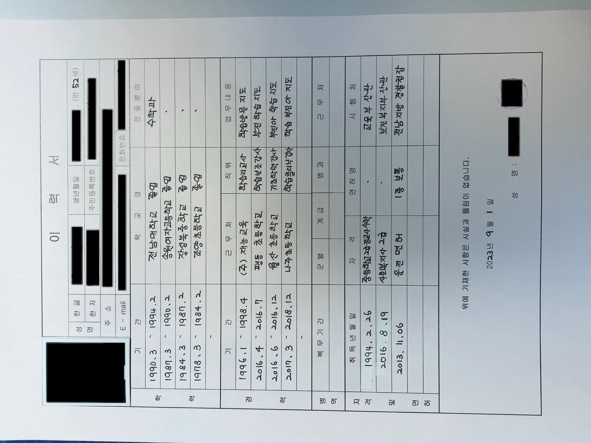 이 력 서
성 한글 생년월일 (만 52세)
명 한자 주민등록번호
주 소
E - mail 전화번호
학 력 기 간 학 교 명 전 공 분 야
1990.3 ~ 1994.2 전남대학교 졸업 수학과
1987.3 ~ 1990.2 송원여자고등학교 졸업 -
1984.3 ~ 1987.2 장성북중학교 졸업 -
1978.3 ~ 1984.2 초등학교 졸업 -
경 력 기 간 근 무 처 직위 업 무 내 용
1996.1 ~ 1998.4 (주) 재능교육 학습지교사
2016.4 ~ 2016.7 초등학교 학습보조강사 부진 학습 지도
2016.6 ~ 2016.12 초등학교 기초학력강사 부진아 학습 지도
2017.3 ~ 2018.12 나주초등 학교 학습 부진아 지도
병 역 복 무 기 간 군 별 계 급 병 과 근 무 처
자 격 및 면 허 취득년월일 자 격 면 허 명 시 행 처
1994.2.26 교육부장관
2016.8.19 사회복지사 2급 - 보건복지부장관
2013.11.06 운전면허 1종 보통 전남지방경찰청장
위에 기재한 사항은 사실과 틀림이 없습니다.
2023년 9월 1일
성 명 :